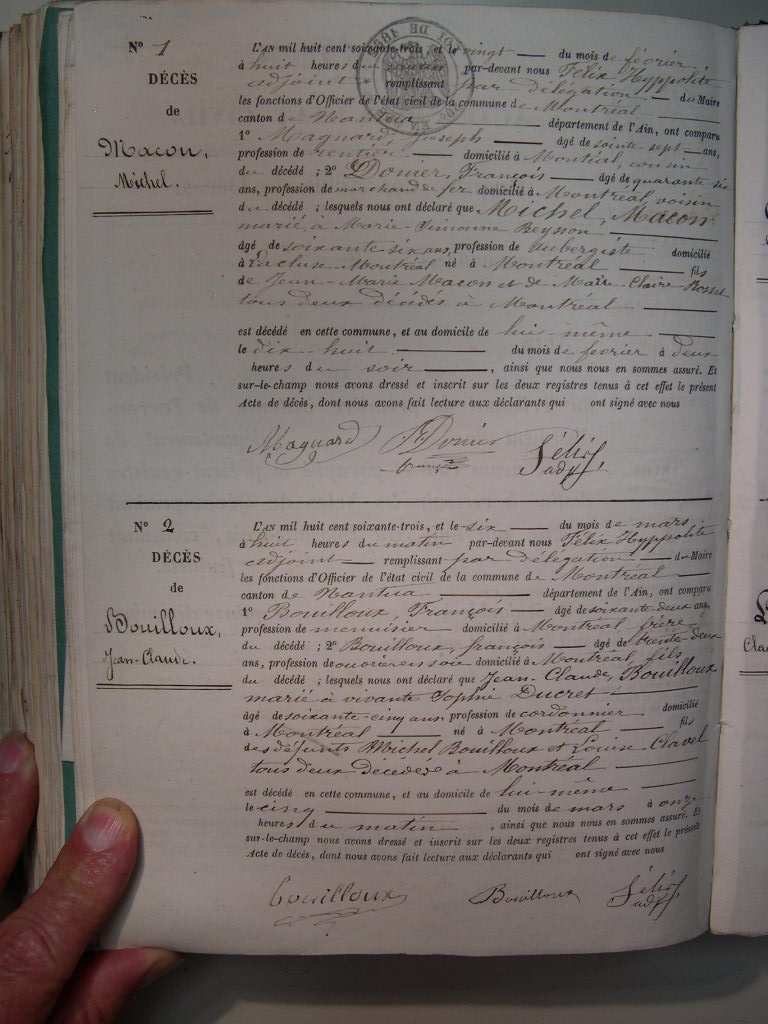 N° 1
DÉCÈS
de
Macon,
Michel.
L'AN mil huit cent soixante-trois, et le vingt du mois de février
à huit heures du par-devant nous Félix Hyppolite
adjoint remplissant par délégation du Maire
les fonctions d'Officier de l'état civil de la commune de Montréal
canton de Nantua département de l'Ain, ont comparu
1° Maguard, Joseph âgé de sointe sept ans,
profession de rentier domicilié à Montréal, cousin
du décédé ; 2° Donier, François âgé de quarante six
ans, profession de marchand de fer domicilié à Montréal, voisin
du décédé ; lesquels nous ont déclaré que Michel, Macon
marié, à Marie Simonne Beysson
âgé de soixante six ans, profession de aubergiste domicilié
à Lacluse Montréal né à Montréal fils
de Jean-Marie Macon et de Marie-Claire Rosset
tous deux décédés à Montréal
est décédé en cette commune, et au domicile de lui-même
le dix huit du mois de février à deux
heures du soir, ainsi que nous nous en sommes assuré. Et
sur-le-champ nous avons dressé et inscrit sur les deux registres tenus à cet effet le présent
Acte de décès, dont nous avons fait lecture aux déclarants qui ont signé avec nous
Maguard Donier Félix
françois adj.
N° 2
DÉCÈS
de
Bouilloux,
Jean-Claude.
L'AN mil huit cent soixante-trois, et le six du mois de mars
à huit heures du matin par-devant nous Félix Hyppolite
adjoint remplissant par délégation du Maire
les fonctions d'Officier de l'état civil de la commune de Montréal
canton de Nantua département de l'Ain, ont comparu
1° Bouilloux, François âgé de soixante deux ans,
profession de menuisier domicilié à Montréal frère
du décédé ; 2° Bouilloux, françois âgé de trente deux
ans, profession de ouvrier en soie domicilié à Montréal fils
du décédé ; lesquels nous ont déclaré que Jean-Claude, Bouilloux
marié à vivante Sophie Ducret
âgé de soixante-cinq ans, profession de cordonnier domicilié
à Montréal né à Montréal fils
des défunts Michel Bouilloux et Louise Clavel
tous deux Décédés à Montréal
est décédé en cette commune, et au domicile de lui-même
le cinq du mois de mars à onze
heures du matin, ainsi que nous nous en sommes assuré. Et
sur-le-champ nous avons dressé et inscrit sur les deux registres tenus à cet effet le présent
Acte de décès, dont nous avons fait lecture aux déclarants qui ont signé avec nous
bouilloux Bouilloux Félix
adj.